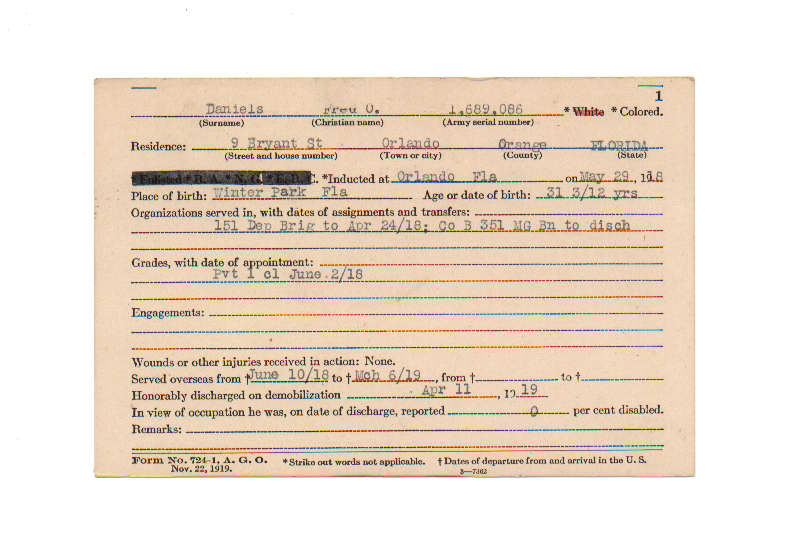 1
Daniels Fred O. 1,689,086 * White * Colored.
(Surname) (Christian name) (Army serial number)
Residence: 9 Bryant St Orlando Orange FLORIDA
(Street and house number) (Town or city) (County) (State)
Enlisted * R. A. * N. G. * E. R. C. *Inducted at Orlando Fla on May 29, 1918
Place of birth: Winter Park Fla Age or date of birth: 31 3/12 yrs
Organizations served in, with dates of assignments and transfers:
151 Dep Brig to Apr 24/18; Co B 351 MG Bn to disch
Grades, with date of appointment:
Pvt 1 cl June 2/18
Engagements:
Wounds or other injuries received in action: None.
Served overseas from † June 10/18 to † Mch 6/19, from † to †
Honorably discharged on demobilization Apr 11, 1919
In view of occupation he was, on date of discharge, reported 0 per cent disabled.
Remarks:
Form No. 724-1, A. G. O. *Strike out words not applicable. † Dates of departure from and arrival in the U. S.
Nov. 22, 1919. 3—7302